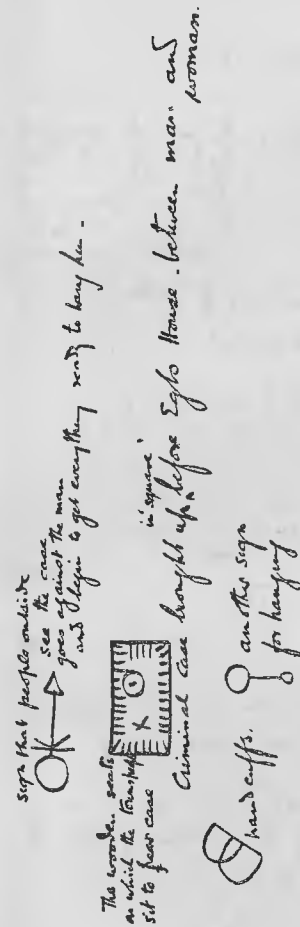 sign that people outside
see the case
goes against the man
and begin to get everything ready to hang him.
The wooden seats
on which the townspeople
sit to hear case
in 'square'
Criminal case brought up before Egbo House. between man and
woman.
handcuffs.
another sign
for hanging